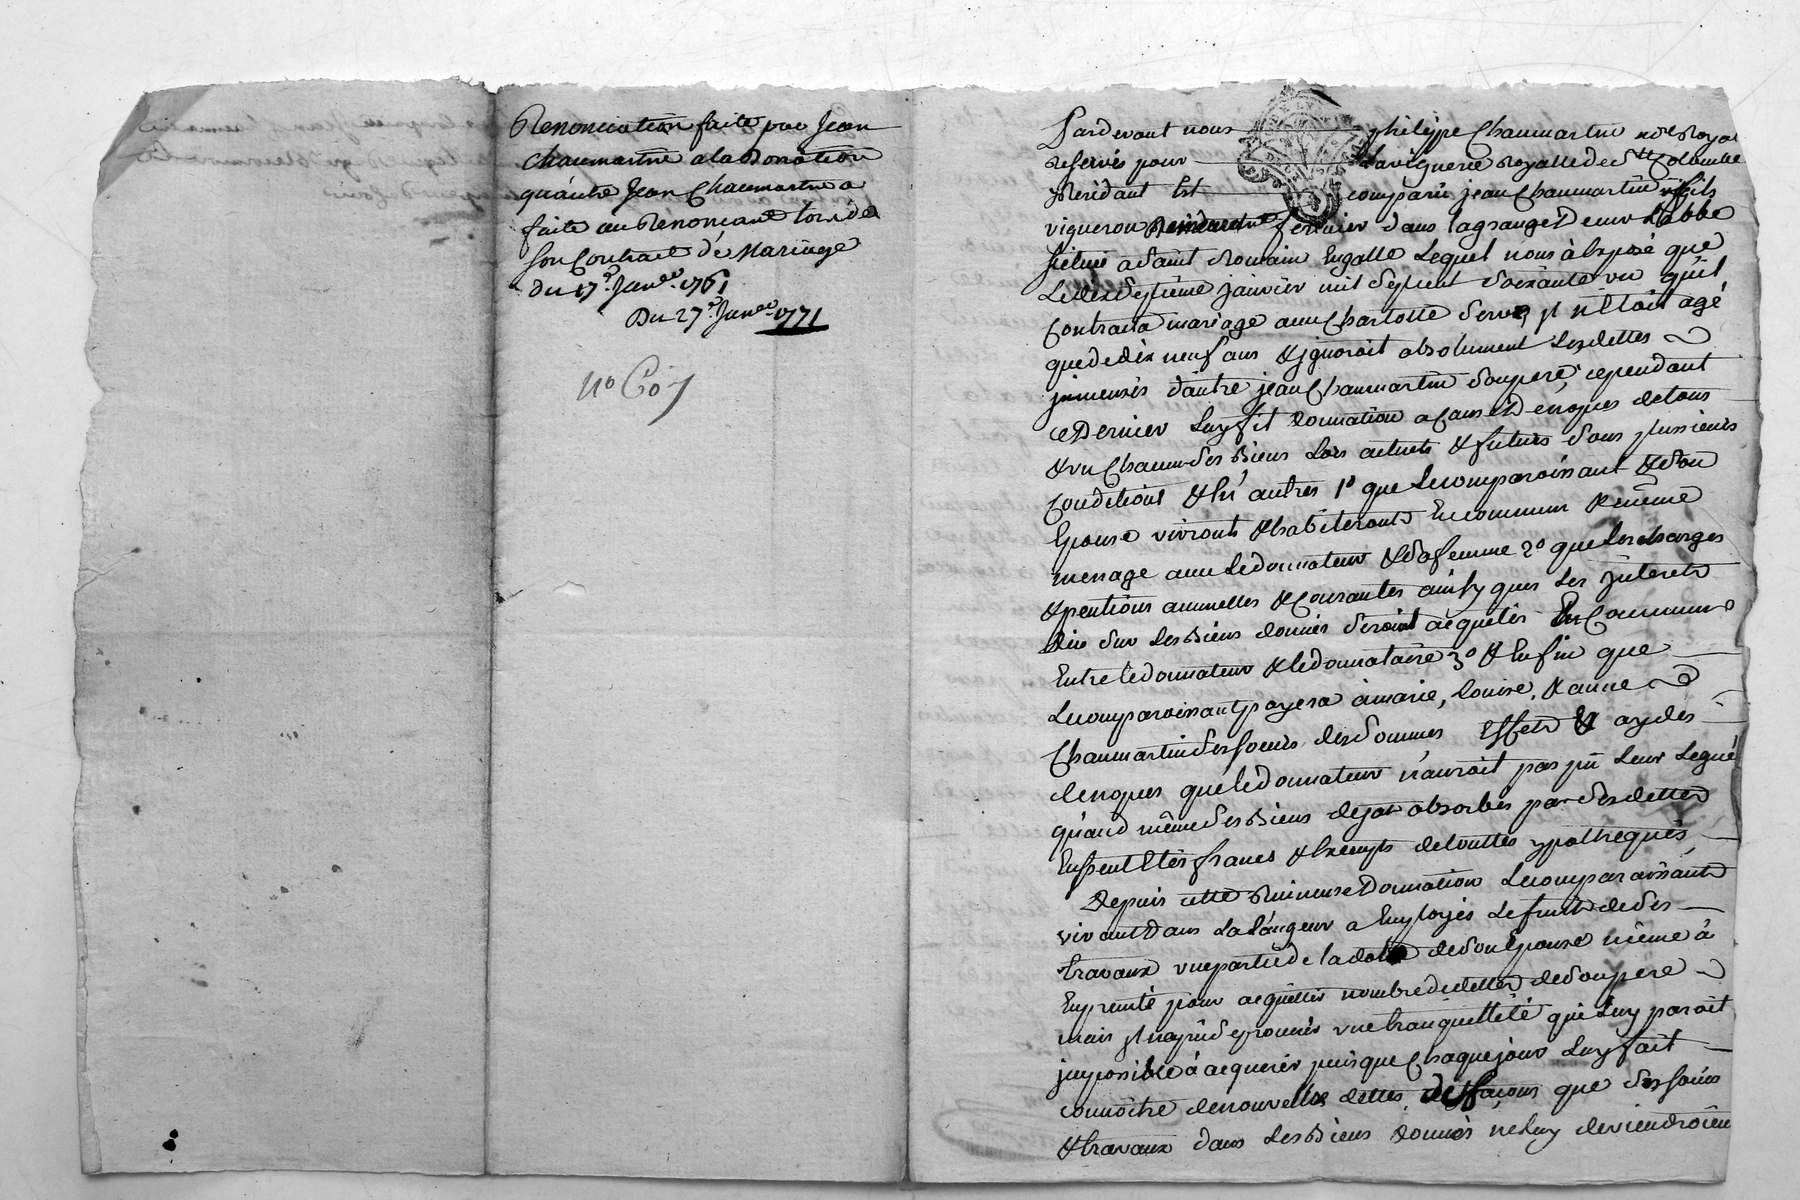 Renonciation faite par Jean
chaumartin a la Donation
qu'autre Jean Chaumartin a
faite au Renoncant lors de
son Contrait de Mariage
du 17e. Janer. 1761
Du 27e. Janer. 1771
No Coj
Pardevant nous philippe Chaumartin nore Royal
reservé pour la viguerie Royalle de ste Colombe
y Residant est comparu jean Chaumartin fils
vigneron fermier dans la grange de mr L'abbé
située a saint Romain En galle Lequel nous à Exposé que
Le dix septième janvier mil sept cent soixante un qu'il
Contracta mariage avec Charlotte serve, jl n'Etoit agé
que de dix neuf ans & jgnoroit absolument Les dettes
jmmenses d'autre jean Chaumartin son pere, cependant
ce Dernier Luy fit donnation a Cause de nopces de tous
& un Chacun ses Biens Lors actuels & futurs sous plusieurs
Conditions & En autres 1o que Le comparoissant & son
Epouse vivront & habiteront En commun & même
menage avec Le donnateur & sa femme 2o que Les charges
& pentions annuelles & Courantes ainsy que Les jnterets
dûs sur Les Biens donnés seroint acquités En Commun
Entre le donnateur & le donnataire 3o & Enfin que
Le comparoissant payera à marie, Louise, & anne
Chaumartin ses soeurs des sommes Effets & aydes
de nopces que le donnateur n'auroit pas pû Leur Legué
quand même ses Biens deja absorbés par ses dettes
Eussent Etés francs & Exempts de touttes ypotheques,
Depuis cette Ruineuse Donnation Le comparaissant
vivant Dans La Langeur a Employés Le fruit de ses
travaux une partie de la dotte de son Epouse même à
Emprunté pour acquitter nombre de dettes de son pere
mais jl n'a pû eprouver une tranquillité qui Luy paroit
jmpossible à acquerir puisque Chaque jour Luy fait
connoitre de nouvelles dettes de façons que ses soins
& travaux dans Les Biens donnés ne Luy deviendroient